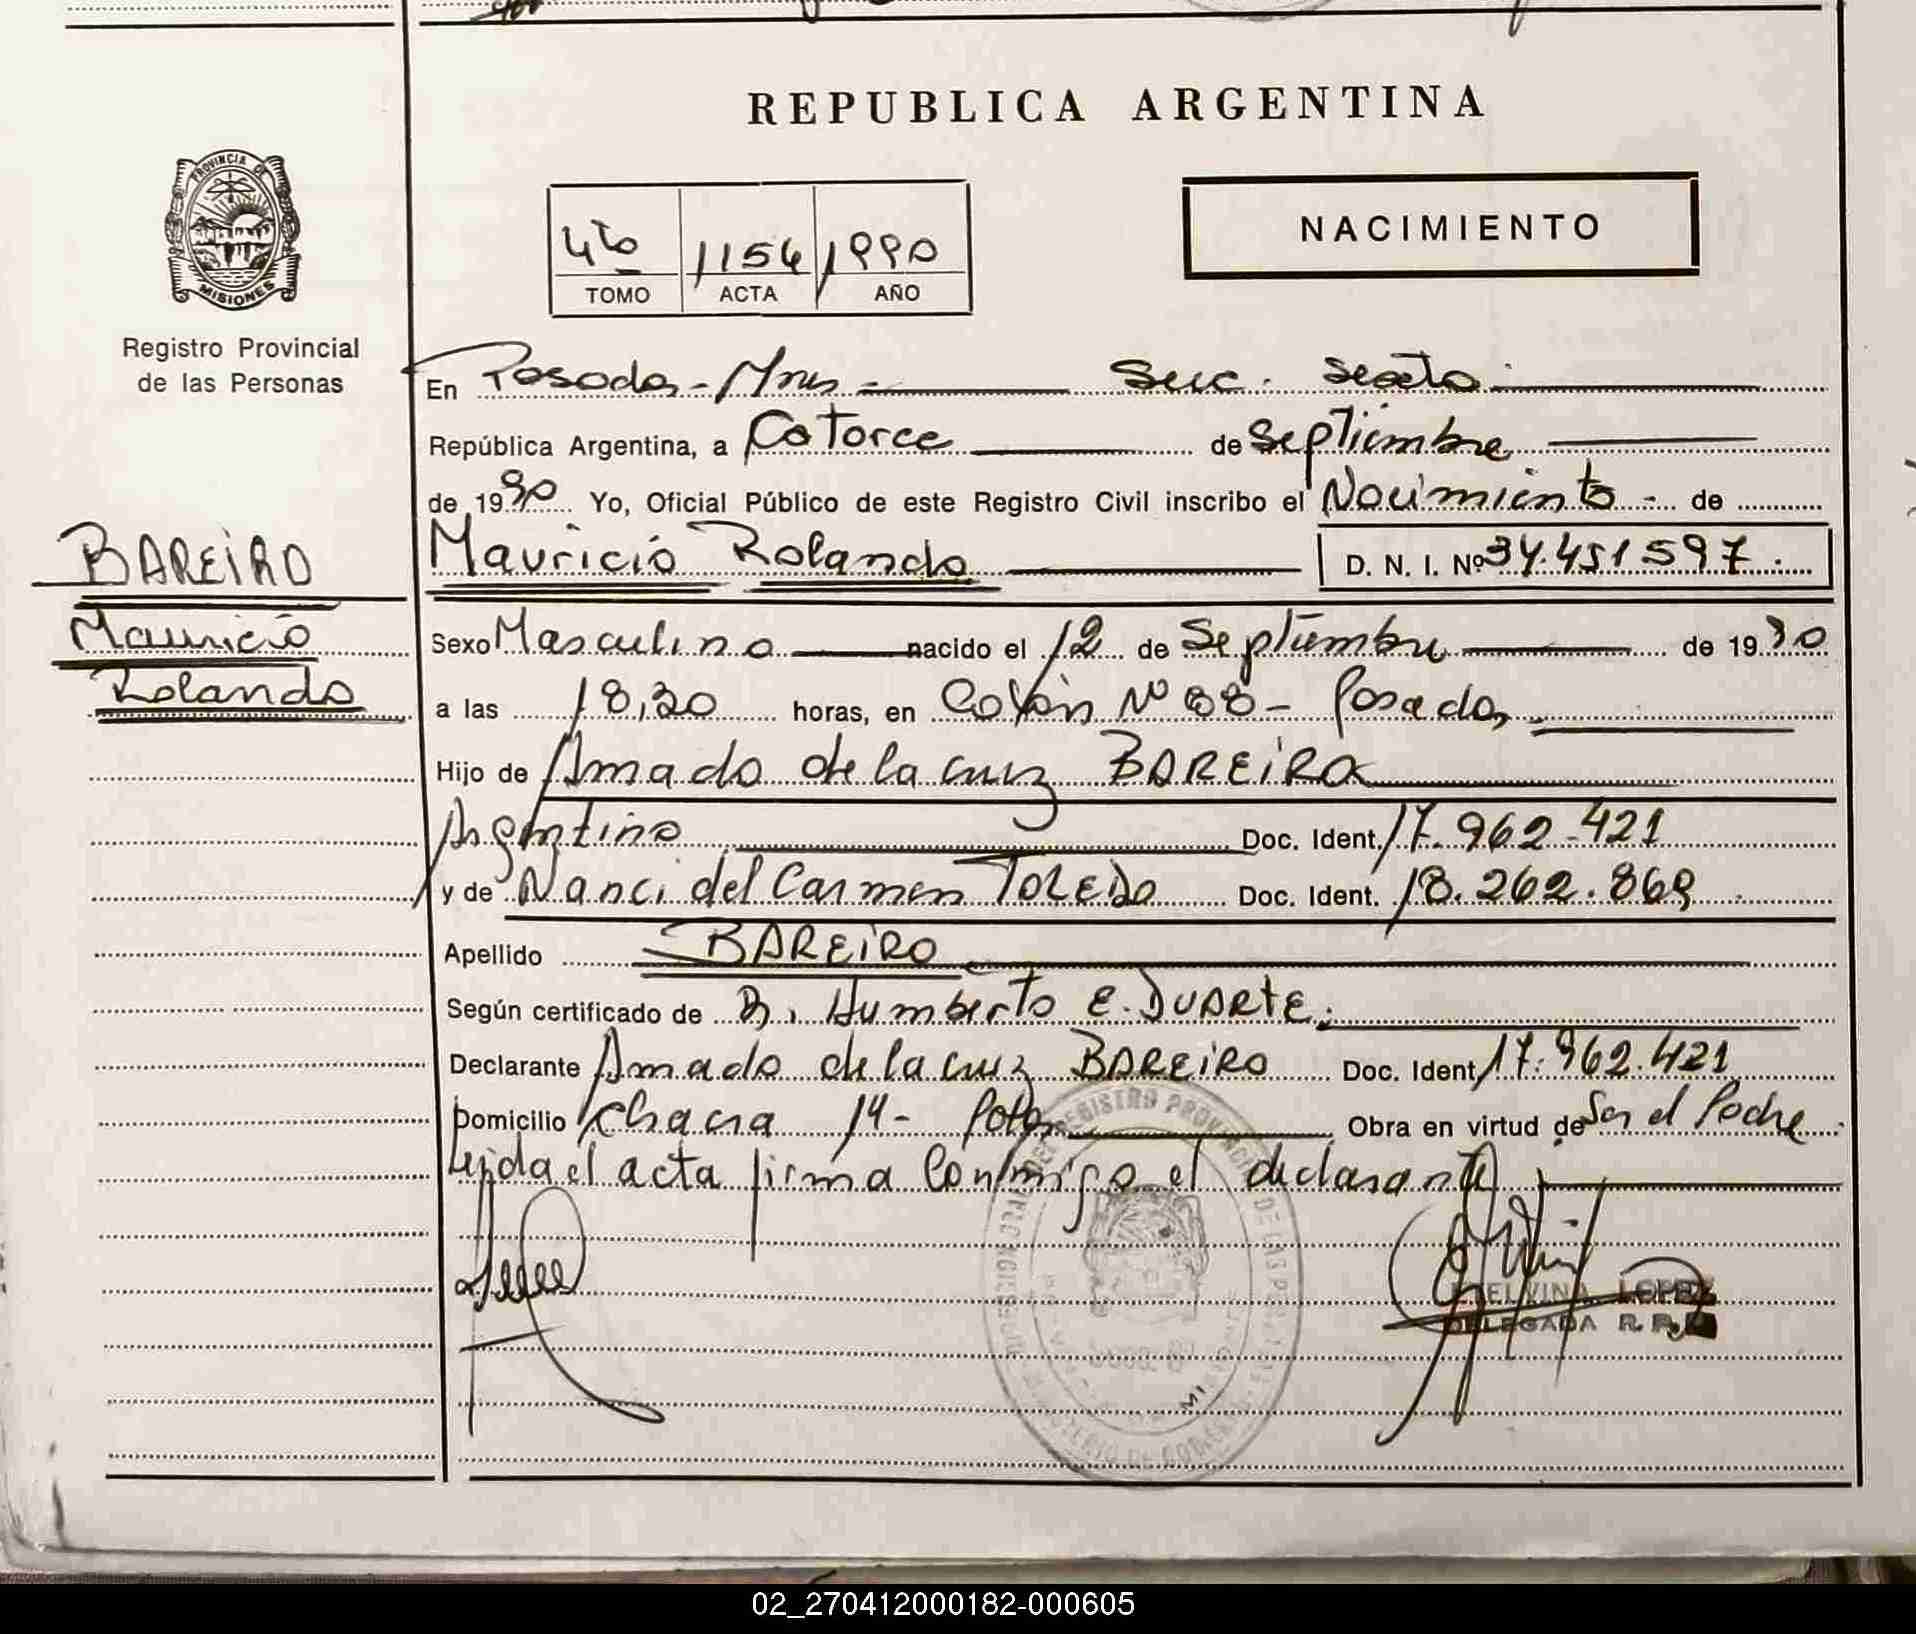 REPUBLICA ARGENTINA
PROVINCIA DE
MISIONES
Registro Provincial
de las Personas
NACIMIENTO
4to 1154 1990
TOMO ACTA AÑO
En Posadas - Mnes - Secc. Sexta
República Argentina, a Catorce de Septiembre
de 1990 Yo, Oficial Público de este Registro Civil inscribo el Nacimiento - de
BAREIRO
Mauricio Rolando D. N. I. Nº 34.451597.
Mauricio
Sexo Masculino nacido el 12 de Septiembre de 1990
Rolando
a las 18,30 horas, en Colón Nº 88 - Posadas
Hijo de Amado de la cruz BAREIRO
Argentino Doc. Ident. 17.962.421
y de Nanci del Carmen TOLEDO Doc. Ident. 18.262.869
Apellido BAREIRO
Según certificado de Dr. Humberto E. DUARTE.
Declarante Amado de la cruz BAREIRO Doc. Ident. 17.962.421
Domicilio Chacra 14 - Obra en virtud de Ser el Padre
Leida el acta firma conmigo el declarante
REGISTRO PROVINCIAL DE LAS PERSONAS
ETELVINA LOPEZ
DELEGADA R. P.
02_270412000182-000605